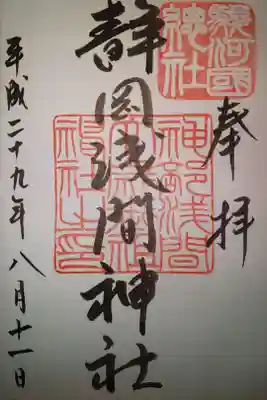 奉拝
駿河國
神社
静岡浅間神社
神部浅間
平成二十九年八月十一日